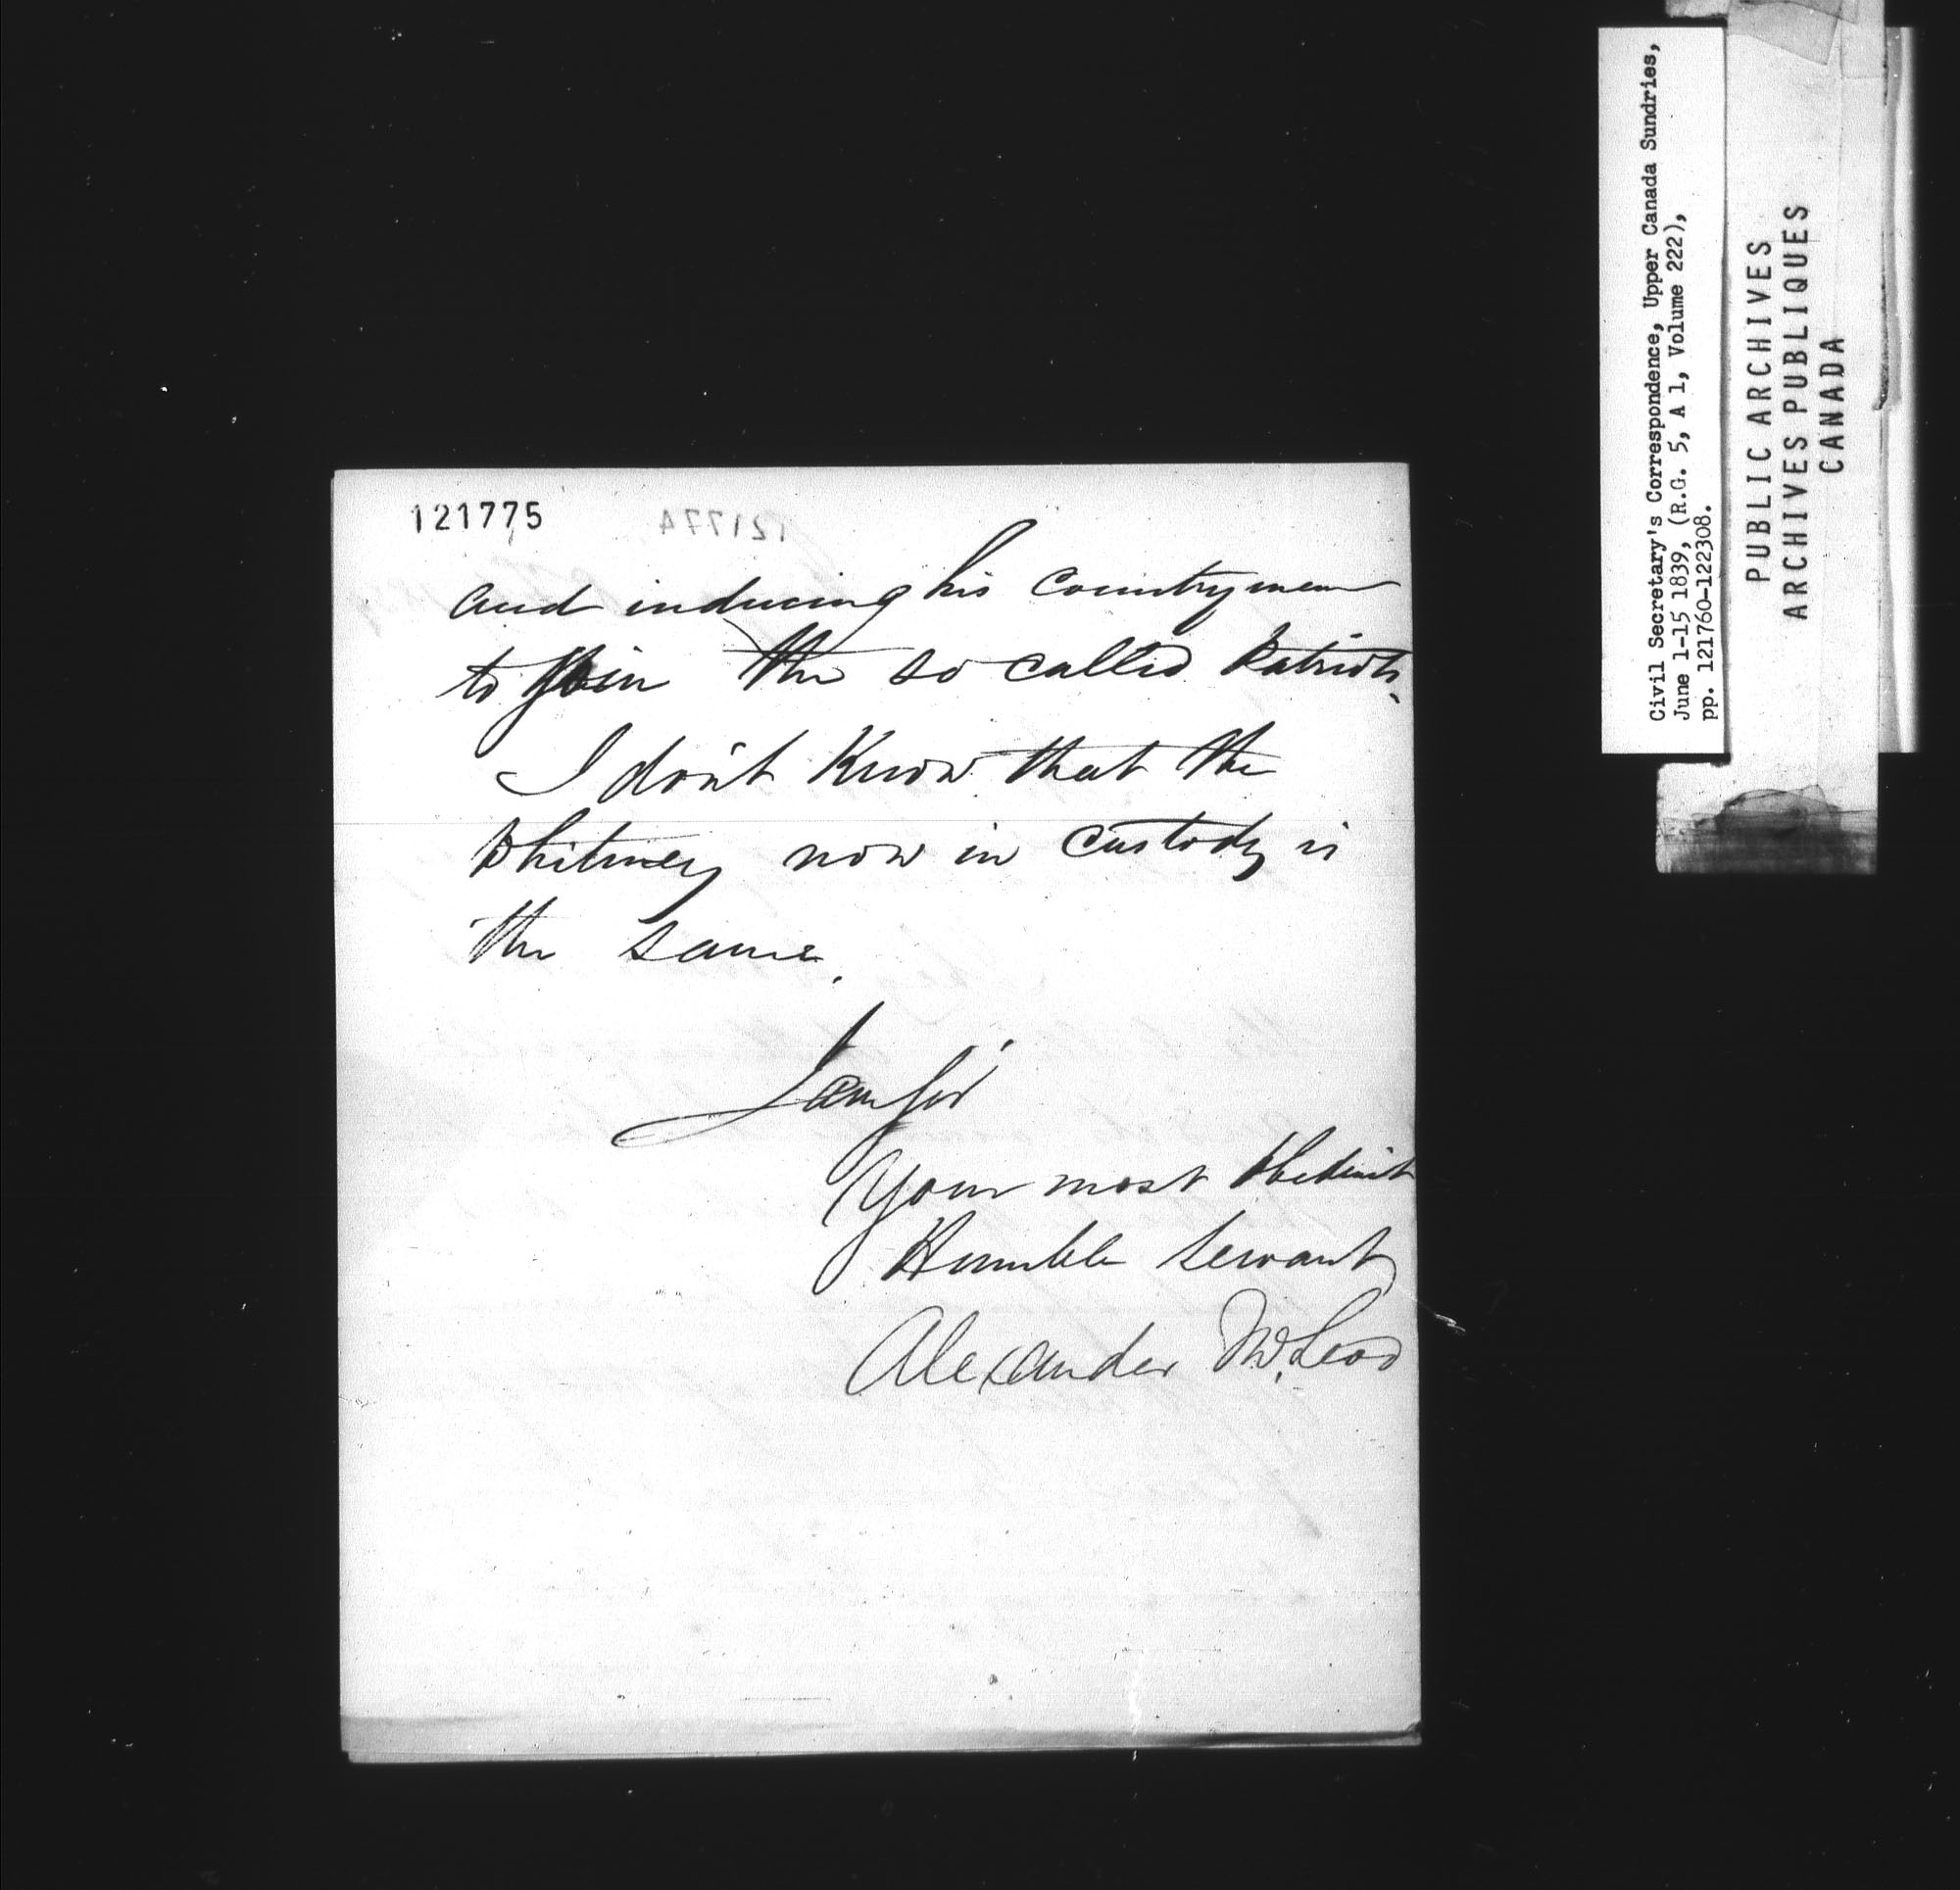 121775
and inducing his countrymen
to join the so called Patriots.
I don't Know that the
Whitney now in custody is
the same.
I am Sir
Your most Obedient
Humble Servant
Alexander McLeod
Civil Secretary's Correspondence, Upper Canada Sundries,
June 1-15 1839, (R.G. 5, A 1, Volume 222),
pp. 121760-122308.
PUBLIC ARCHIVES
ARCHIVES PUBLIQUES
CANADA